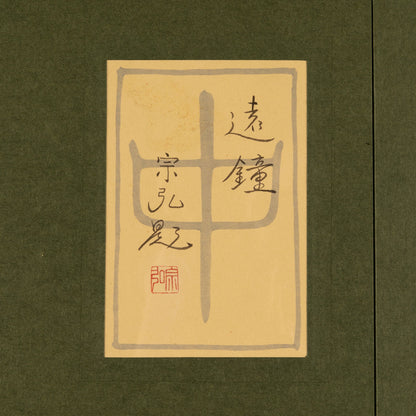 遠鐘
宗弘題
中
宗弘